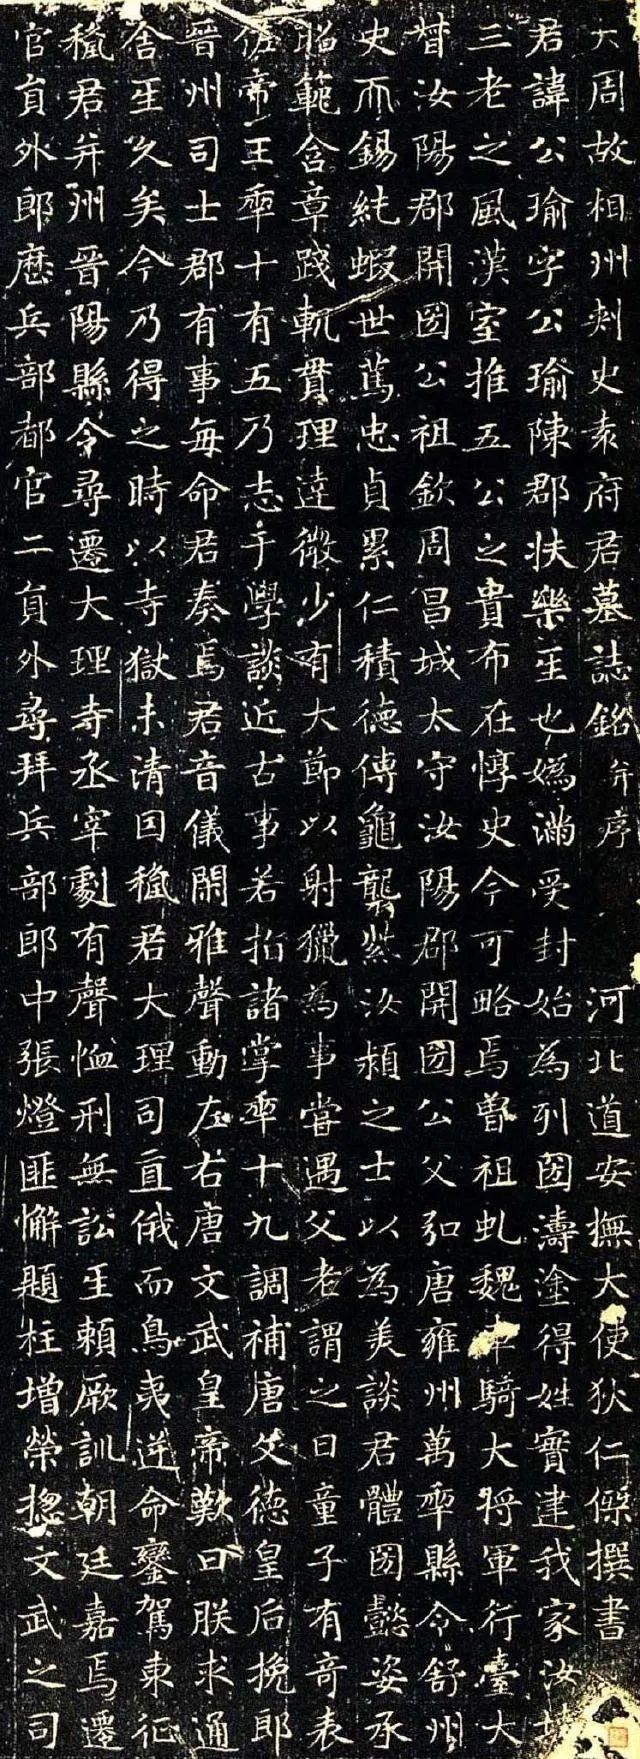 大周故相州刺史袁府君墓誌銘并序 河北道安撫大使狄仁傑撰書
君諱公瑜字公瑜陳郡扶樂𤯔也媯滿受封始為列圀濤塗得姓實建我家汝墳
三老之風漢室推五公之貴布在惇史今可略焉曾祖虬魏車騎大將軍行臺大
督汝陽郡開圀公祖欽周昌城太守汝陽郡開圀公父弘唐雍州萬𠡦縣令舒州
史而錫純蝦世篤忠貞累仁積德傳龜襲紫汝潁之士以為美談君體圀懿姿承
昭範含章踐軌貫理達微少有大節以射獵為事嘗遇父老謂之曰童子有奇表
佐帝王𠡦十有五乃志于學談近古事若指諸掌𠡦十九調補唐文德皇后挽郎
晉州司士郡有事每命君奏焉君音儀閑雅聲動左右唐文武皇帝歎曰朕求通
舍𤯔久矣今乃得之時以寺獄未清因𥠢君大理司直俄而鳥夷逆命鑾駕東征
𥠢君并州晉陽縣令尋遷大理寺丞宰劇有聲恤刑無訟𤯔賴厥訓朝廷嘉焉遷
官員外郎歷兵部都官二員外尋拜兵部郎中張燈匪懈題柱增榮揔文武之司